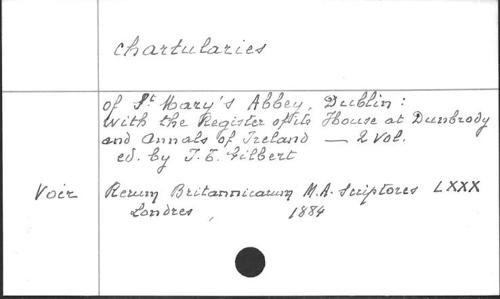 chartularies
of St Mary's Abbey, Dublin :
with the Register of its House at Dunbrody
and Annals of Ireland — 2 vol.
ed. by J. T. Gilbert
Voir Rerum Britannicarum M.A. Scriptores LXXX
Londres, 1884